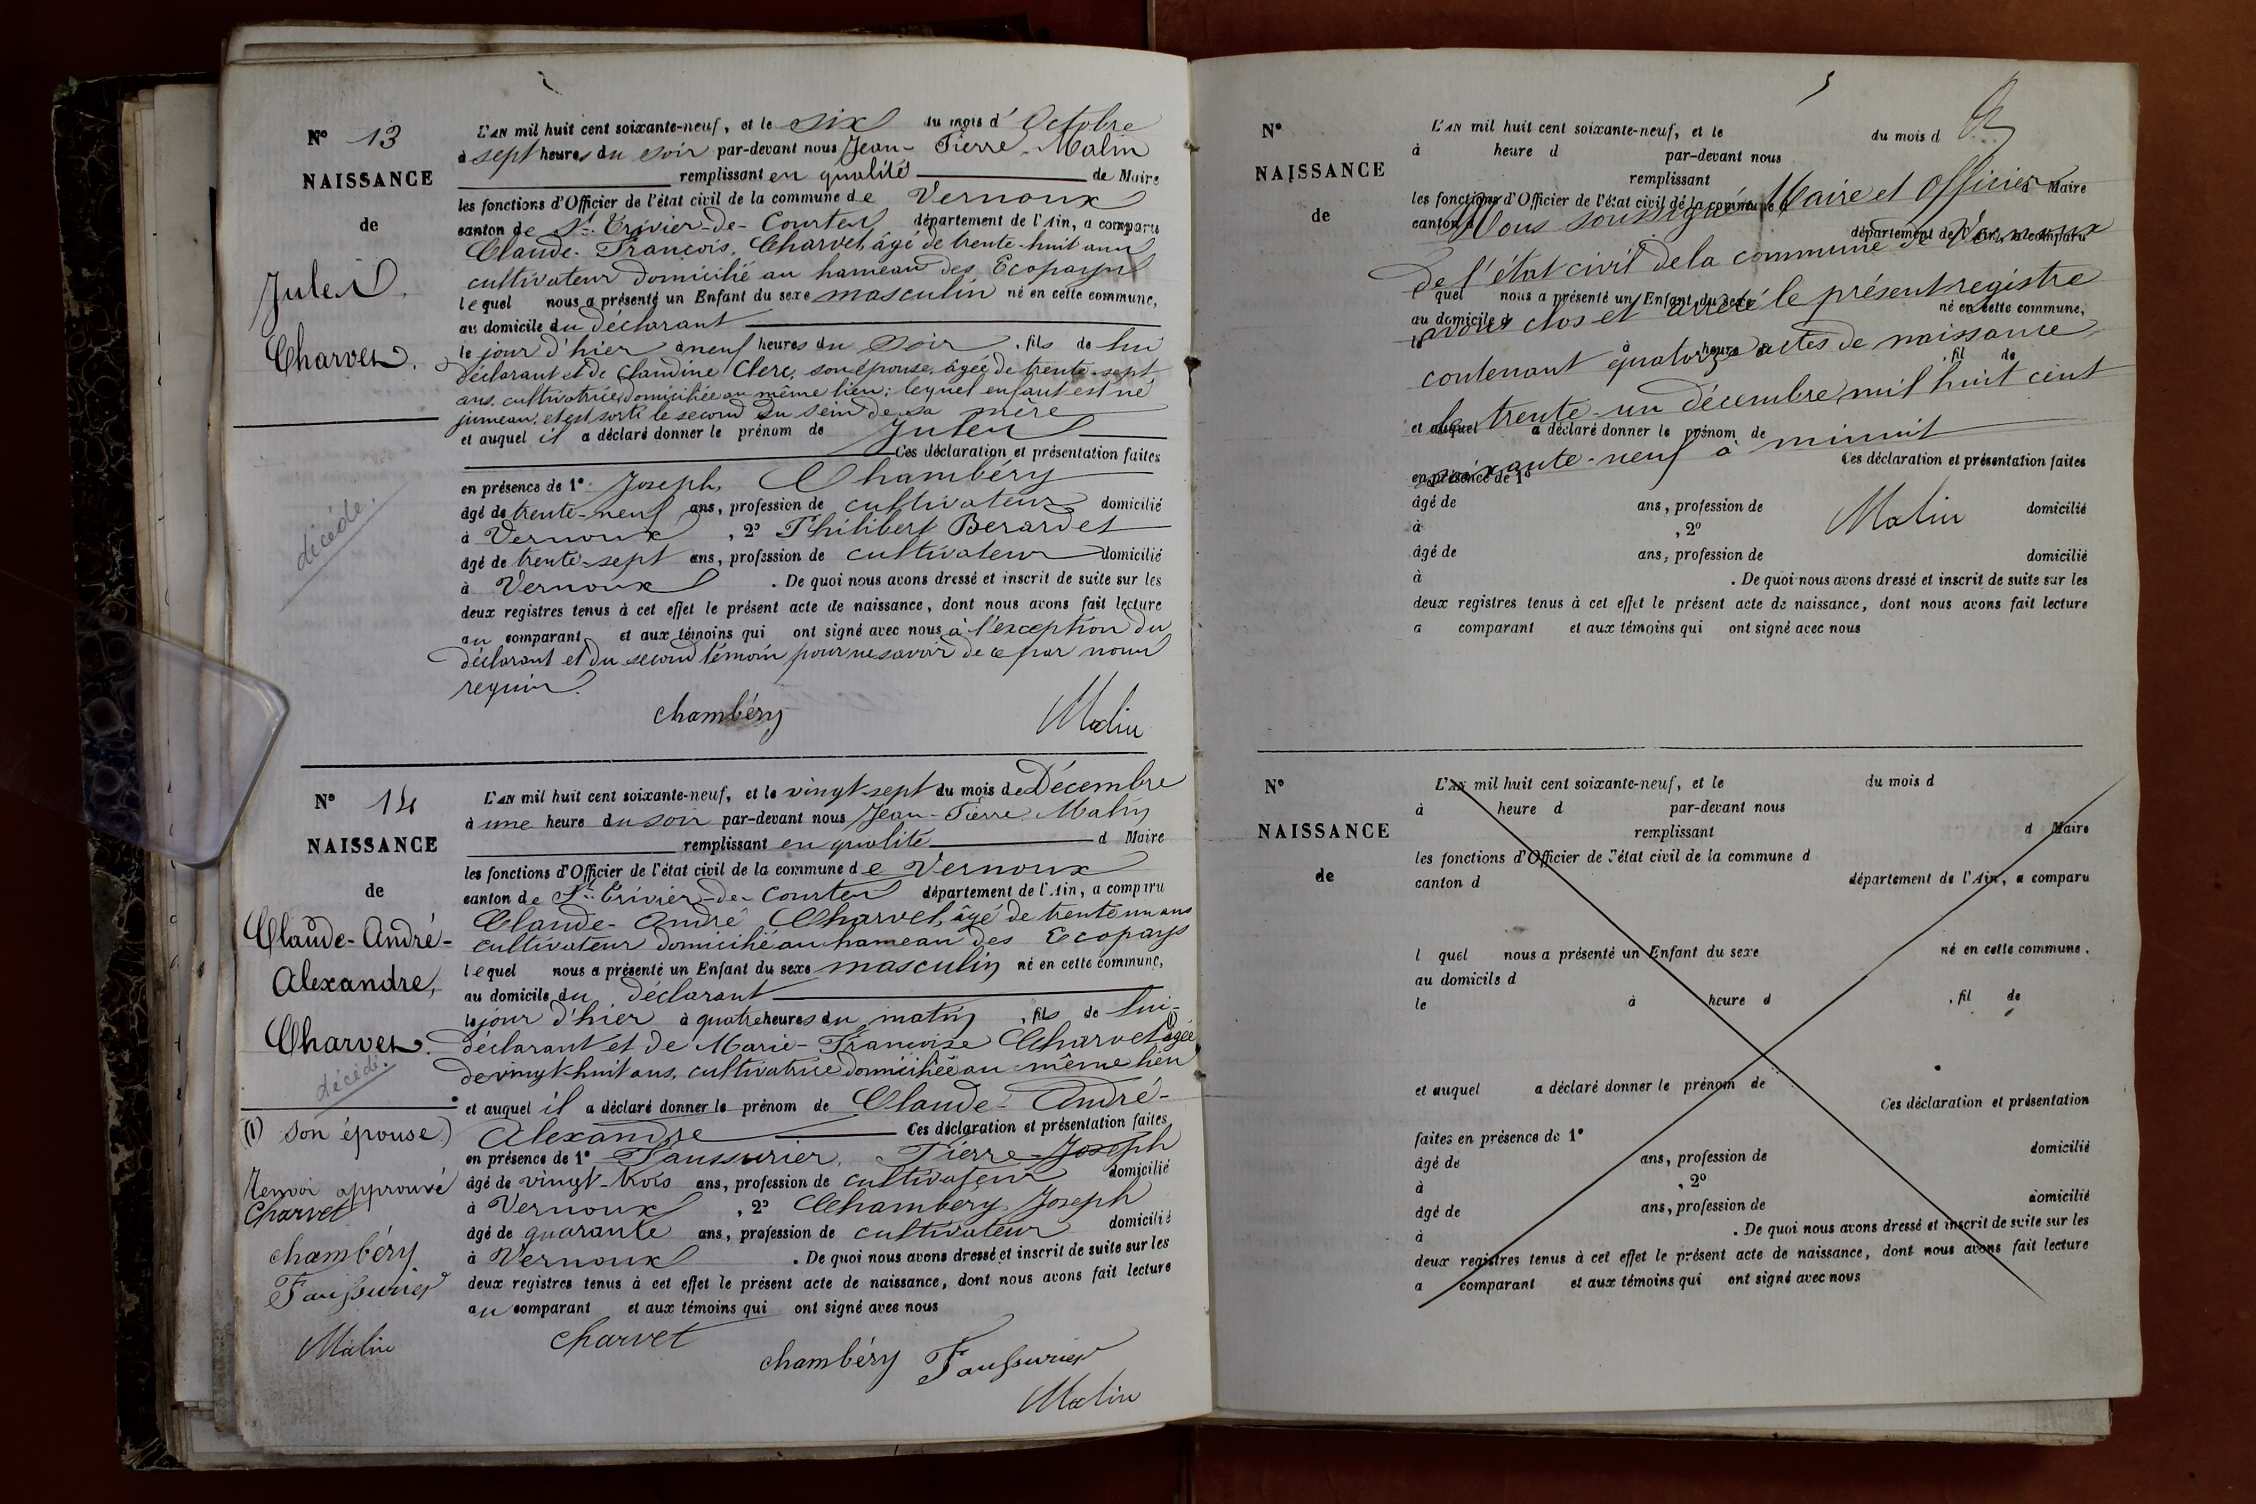 N° 13
NAISSANCE
de
Jules
Charvet.
décédé.
L'AN mil huit cent soixante-neuf, et le six du mois d'Octobre
à sept heures du soir par-devant nous Jean-Pierre Malin
remplissant en qualité de Maire
les fonctions d'Officier de l'état civil de la commune de Vernoux
canton de St. Trivier-de-Courtes département de l'Ain, a comparu
Claude-François, Charvet, âgé de trente-huit ans
cultivateur domicilié au hameau des Ecopays
lequel nous a présenté un Enfant du sexe masculin né en cette commune,
au domicile du déclarant
le jour d'hier à neuf heures du soir, fils de lui
déclarant et de Claudine Clerc, son épouse, âgée de trente-sept
ans, cultivatrice domiciliée au même lieu; lequel enfant est né
jumeau, et est sorti le second du sein de sa mère
et auquel il a déclaré donner le prénom de Jules
Ces déclaration et présentation faites
en présence de 1° Joseph, Chambéry
âgé de trente-neuf ans, profession de cultivateur domicilié
à Vernoux, 2° Philibert Berardet
âgé de trente-sept ans, profession de cultivateur domicilié
à Vernoux. De quoi nous avons dressé et inscrit de suite sur les
deux registres tenus à cet effet le présent acte de naissance, dont nous avons fait lecture
au comparant et aux témoins qui ont signé avec nous à l'exception du
déclarant et du second témoin pour ne savoir de ce par nous
requis.
Chambéry Malin
N° 14
NAISSANCE
de
Claude-André-
Alexandre,
Charvet.
décédé.
(1) son épouse)
Renvoi approuvé
Charvet
Chambéry
Faussurier
Malin
L'AN mil huit cent soixante-neuf, et le vingt-sept du mois de Décembre
à une heure du soir par-devant nous Jean-Pierre Malin
remplissant en qualité d Maire
les fonctions d'Officier de l'état civil de la commune de Vernoux
canton de St. Trivier-de-Courtes département de l'Ain, a comparu
Claude-André Charvet, âgé de trente un ans
cultivateur domicilié au hameau des Ecopays
lequel nous a présenté un Enfant du sexe masculin né en cette commune,
au domicile du déclarant
le jour d'hier à quatre heures du matin, fils de lui-
déclarant et de Marie-Françoise Charvet (1) âgée
de vingt-huit ans, cultivatrice domiciliée au même lieu
et auquel il a déclaré donner le prénom de Claude-André-
Alexandre Ces déclaration et présentation faites
en présence de 1° Faussurier, Pierre-Joseph
âgé de vingt-trois ans, profession de cultivateur domicilié
à Vernoux, 2° Chambéry Joseph
âgé de quarante ans, profession de cultivateur domicilié
à Vernoux. De quoi nous avons dressé et inscrit de suite sur les
deux registres tenus à cet effet le présent acte de naissance, dont nous avons fait lecture
au comparant et aux témoins qui ont signé avec nous
Charvet
Chambéry Faussurier
Malin
N°
NAISSANCE
de
L'AN mil huit cent soixante-neuf, et le du mois d
à heure d par-devant nous
remplissant Maire
les fonctions d'Officier de l'état civil de la commune d
canton d département de l'Ain, a comparu
l quel nous a présenté un Enfant du sexe né en cette commune,
au domicile d
le à heure d, fil de
et auquel a déclaré donner le prénom de
Ces déclaration et présentation faites
en présence de 1°
âgé de ans, profession de domicilié
à, 2°
âgé de ans, profession de domicilié
à. De quoi nous avons dressé et inscrit de suite sur les
deux registres tenus à cet effet le présent acte de naissance, dont nous avons fait lecture
a comparant et aux témoins qui ont signé avec nous
Nous soussigné Maire et Officier
de l'état civil de la commune de Vernoux
avons clos et arrêté le présent registre
contenant quatorze actes de naissance,
le trente-un décembre mil huit cent
soixante-neuf à minuit
Malin
N°
NAISSANCE
de
L'AN mil huit cent soixante-neuf, et le du mois d
à heure d par-devant nous
remplissant d Maire
les fonctions d'Officier de l'état civil de la commune d
canton d département de l'Ain, a comparu
l quel nous a présenté un Enfant du sexe né en cette commune.
au domicile d
le à heure d, fil de
et auquel a déclaré donner le prénom de
Ces déclaration et présentation
faites en présence de 1°
âgé de ans, profession de domicilié
à, 2°
âgé de ans, profession de domicilié
à. De quoi nous avons dressé et inscrit de suite sur les
deux registres tenus à cet effet le présent acte de naissance, dont nous avons fait lecture
a comparant et aux témoins qui ont signé avec nous